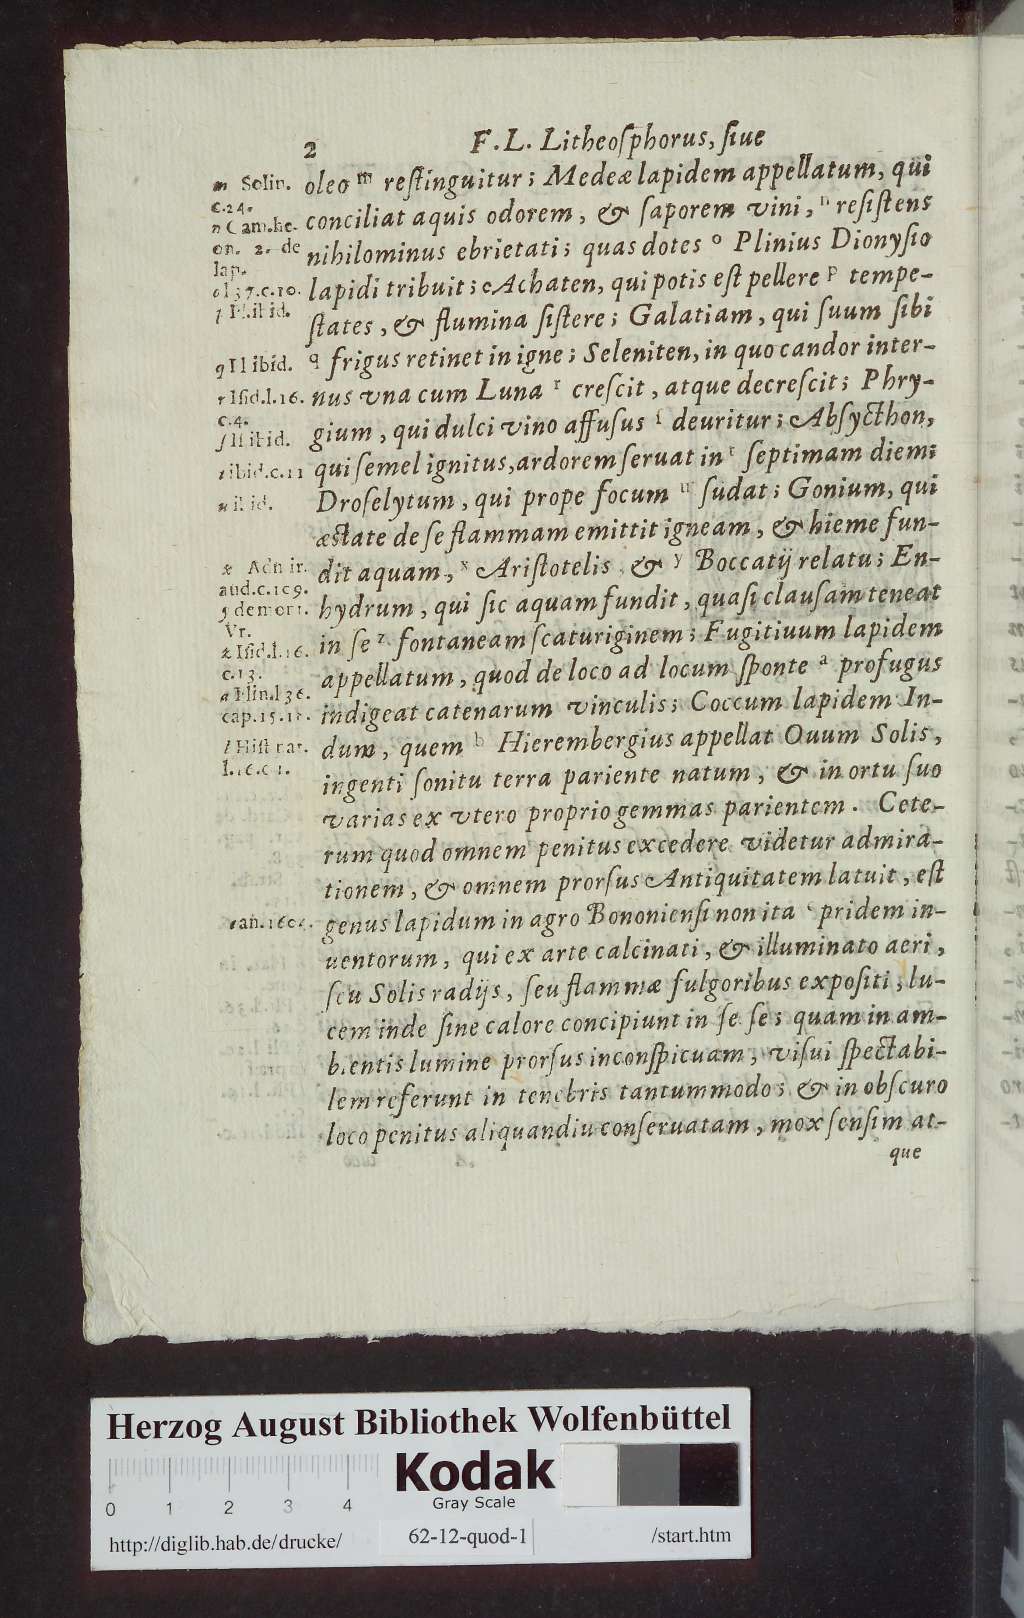 2 F. L. Litheoſphorus, ſiue
oleo m reſtinguitur; Medeæ lapidem appellatum, qui
conciliat aquis odorem, & ſaporem vini, n reſiſtens
nihilominus ebrietati; quas dotes o Plinius Dionyſio
lapidi tribuit; Achaten, qui potis eſt pellere p tempe-
ſtates, & flumina ſiſtere; Galatiam, qui ſuum ſibi
q frigus retinet in igne; Seleniten, in quo candor inter-
nus vna cum Luna r creſcit, atque decreſcit; Phry-
gium, qui dulci vino affuſus ſ deuritur; Abſycthon,
qui ſemel ignitus, ardorem ſeruat in t ſeptimam diem;
Droſelytum, qui prope focum u ſudat; Gonium, qui
æſtate de ſe flammam emittit igneam, & hieme fun-
dit aquam, x Ariſtotelis & y Boccatij relatu; En-
hydrum, qui ſic aquam fundit, quaſi clauſam teneat
in ſe z fontaneam ſcaturiginem; Fugitiuum lapidem
appellatum, quod de loco ad locum ſponte a profugus
indigeat catenarum vinculis; Coccum lapidem In-
dum, quem b Hierembergius appellat Ouum Solis,
ingenti ſonitu terra pariente natum, & in ortu ſuo
varias ex vtero proprio gemmas parientem. Cete-
rum quod omnem penitus excedere videtur admira-
tionem, & omnem prorſus Antiquitatem latuit, eſt
genus lapidum in agro Bononienſi non ita c pridem in-
uentorum, qui ex arte calcinati, & illuminato aeri,
ſeu Solis radijs, ſeu flammæ fulgoribus expoſiti, lu-
cem inde ſine calore concipiunt in ſe ſe; quam in am-
bientis lumine prorſus inconſpicuam, viſui ſpectabi-
lem referunt in tenebris tantummodo; & in obſcuro
loco penitus aliquandiu conſeruatam, mox ſenſim at-
que
m Solin.
c.24.
n Cam. he.
on. 2. de
lap.
o l 37.c.10.
p Pl.ibid.
q Pl ibid.
r Iſid.l.16.
c.4.
ſ Iſ ibid.
t ibid.c.11
u ibid.
x Admir.
aud.c.109.
y de mont.
Vr.
z Iſid.l.16.
c.13.
a Plin.l 36.
cap.15.
b Hiſt nat.
l.16.
Herzog August Bibliothek Wolfenbüttel
Kodak
Gray Scale
0 1 2 3 4
http://diglib.hab.de/drucke/ 62-12-quod-1 /start.htm